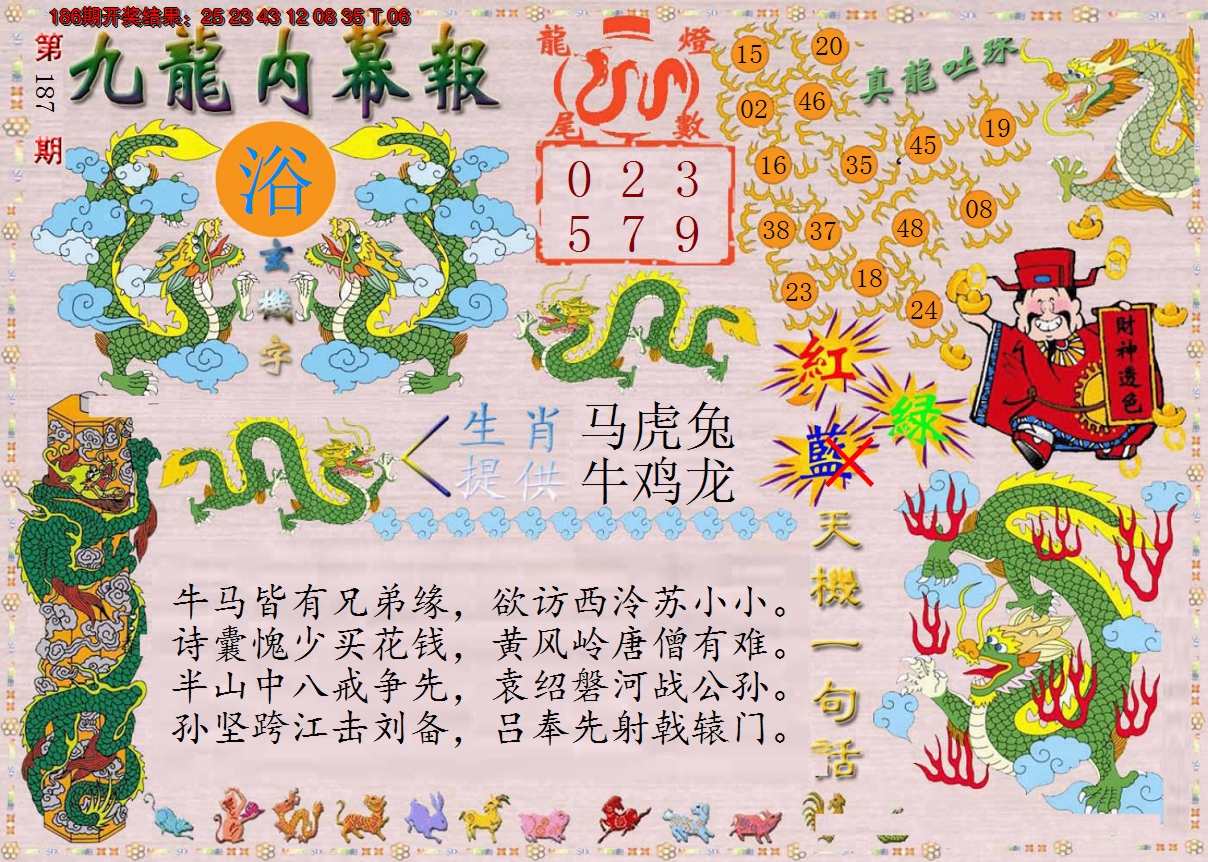 186期开奖结果：25 23 43 12 08 35 T 06
第187期
九龍内幕報
浴
玄機字
龍燈
尾數
0 2 3
5 7 9
真龍吐珠
15 20
02 46
16 35 45 19
38 37 48 08
23 18 24
財神透色
紅
綠
藍
生肖提供
马虎兔
牛鸡龙
天機一句话
牛马皆有兄弟缘，欲访西泠苏小小。
诗囊愧少买花钱，黄风岭唐僧有难。
半山中八戒争先，袁绍磐河战公孙。
孙坚跨江击刘备，吕奉先射戟辕门。